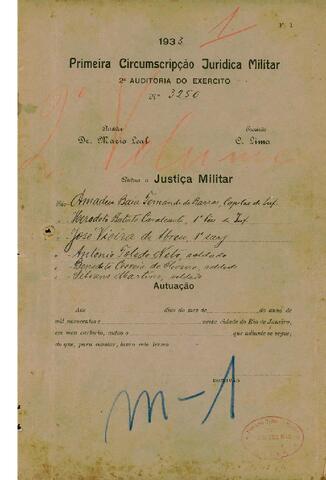 F. 1
1933
1
Primeira Circumscripção Juridica Militar
2ª AUDITORIA DO EXERCITO
Nº 3250
2º Volume
Auditor Escrivão
Dr. Mario Leal C. Lima
Autora a Justiça Militar
Amadeu Bara Fernando de Barros, Capitão de Inf.
Heredoto Batista Cavalcanti, 1º Ten de Inf.
José Vieira de Abreu, 1º sarg
Antonio Toledo Neto, soldado
Benedito Correia de Oliveira, soldado
Martins, soldado
Autuação
Aos dias do mez de do anno de
mil novecentos e nesta cidade do Rio de Janeiro,
em meu cartorio, autuo que adiante se segue;
do que, para constar, lavro este termo.
ESCRIVÃO
m-1